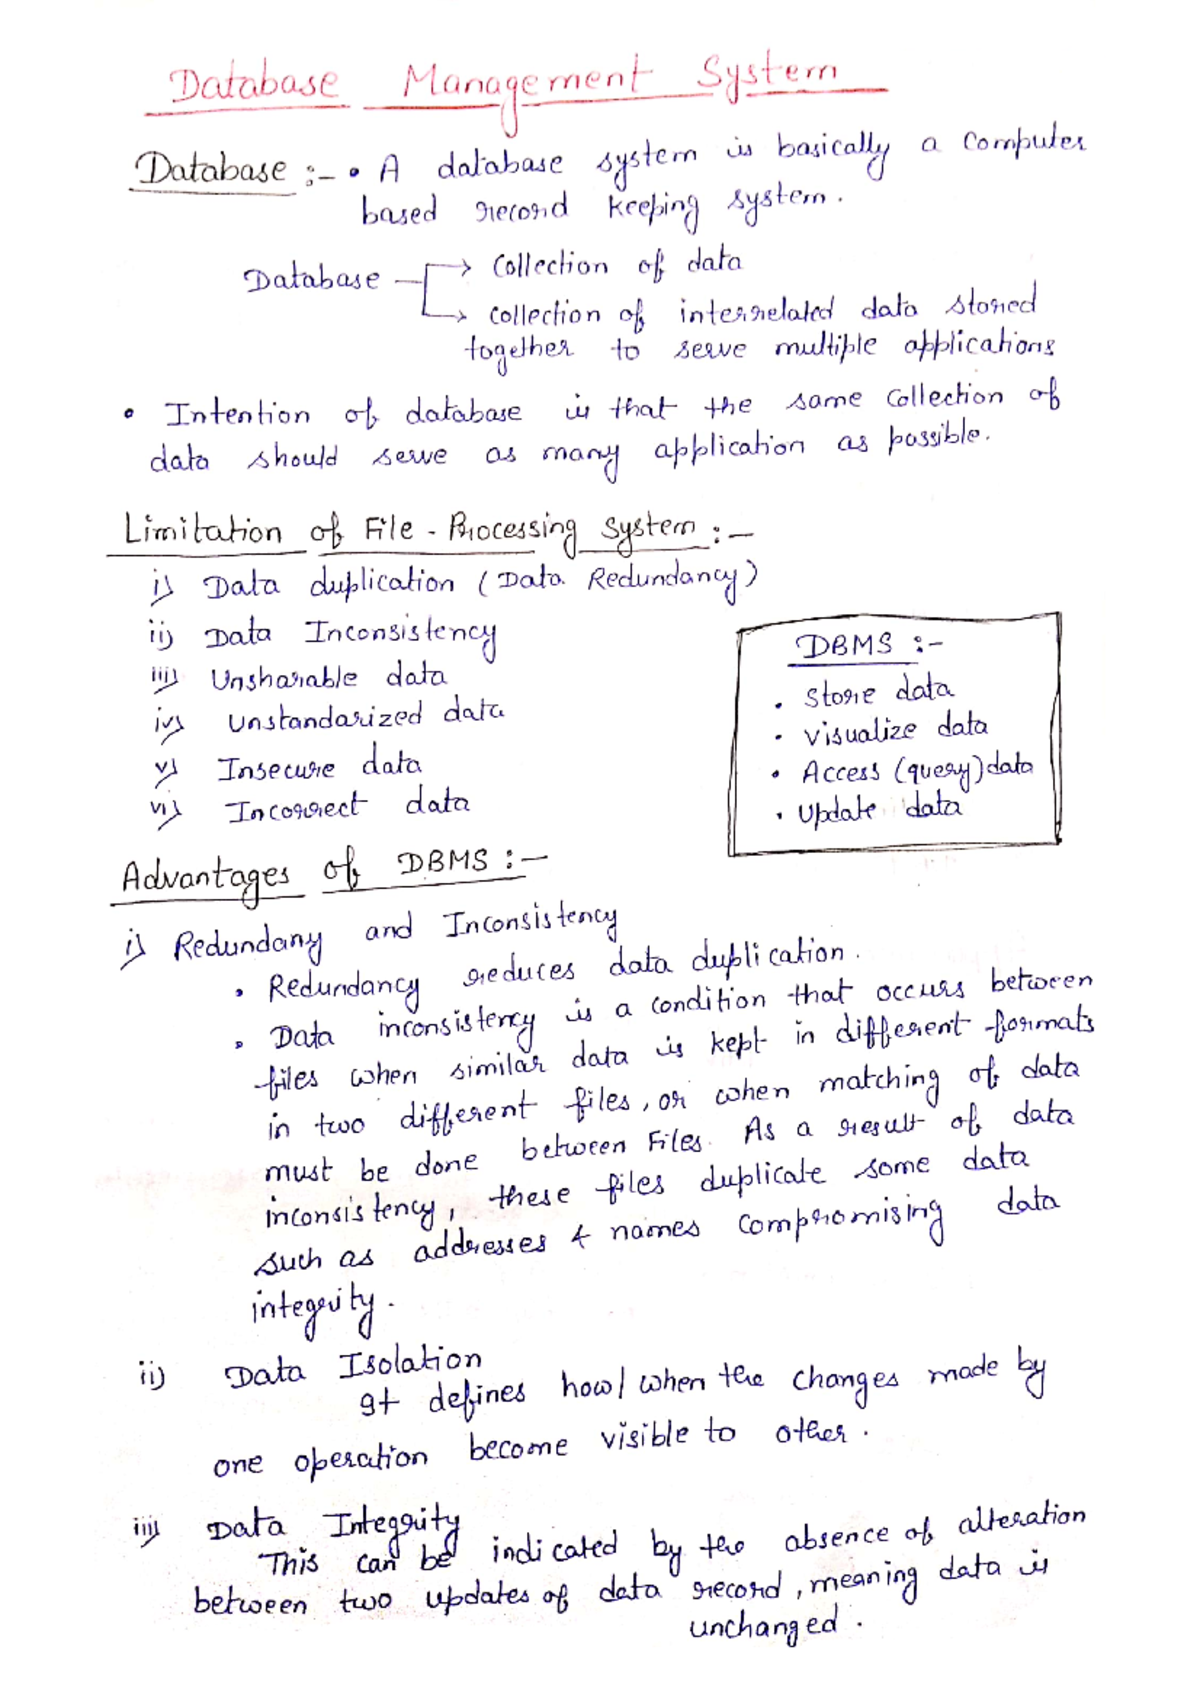 Database Management System
Database :- • A database system is basically a computer
based record keeping system.
Database → Collection of data
→ collection of interrelated data stored
together to serve multiple applications
• Intention of database is that the same collection of
data should serve as many application as possible.
Limitation of File - Processing System :-
i) Data duplication (Data Redundancy)
ii) Data Inconsistency
iii) Unsharable data
iv) Unstandarized data
v) Insecure data
vi) Incorrect data
DBMS :-
• Store data
• visualize data
• Access (query) data
• Update data
Advantages of DBMS :-
i) Redundany and Inconsistency
• Redundancy reduces data duplication.
• Data inconsistency is a condition that occurs between
files when similar data is kept in different formats
in two different files, or when matching of data
must be done between Files. As a result of data
inconsistency, these files duplicate some data
such as addresses & names compromising data
integrity.
ii) Data Isolation
It defines how/when the changes made by
one operation become visible to other.
iii) Data Integrity
This can be indicated by the absence of alteration
between two updates of data record, meaning data is
unchanged.